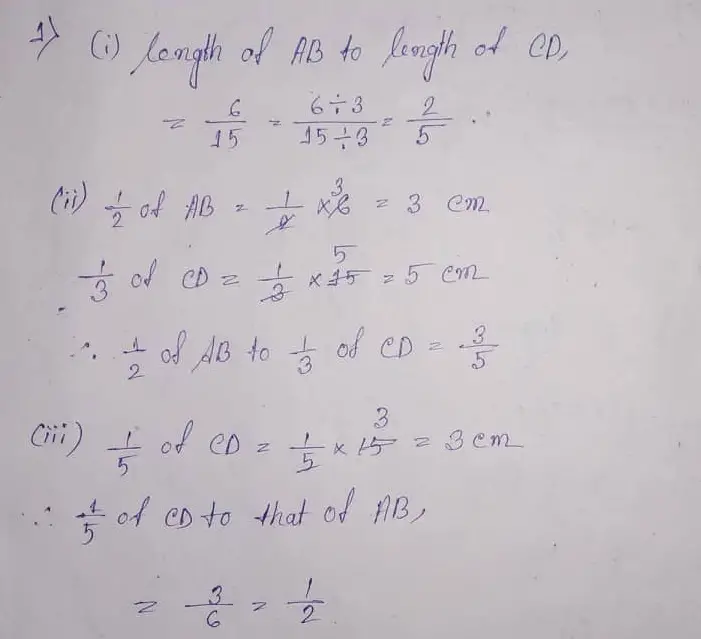 1) (i) Length of AB to length of CD,
= 6/15 = 6÷3/15÷3 = 2/5 ..
(ii) 1/2 of AB = 1/2 × 6 3 = 3 cm
1/3 of CD = 1/3 × 15 5 = 5 cm
∴ 1/2 of AB to 1/3 of CD = 3/5
(iii) 1/5 of CD = 1/5 × 15 3 = 3 cm
∴ 1/5 of CD to that of AB,
= 3/6 = 1/2